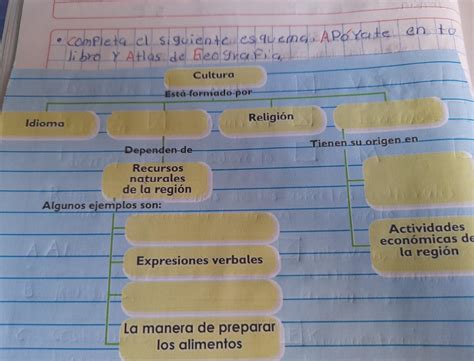 • Completa el siguiente esquema, APóYate en tu
libro Y Atlas de Geografia
Cultura
Está formado por
Idioma
Religión
Dependen de
Tienen su origen en
Recursos
naturales
de la región
Algunos ejemplos son:
Actividades
económicas de
la región
Expresiones verbales
La manera de preparar
los alimentos